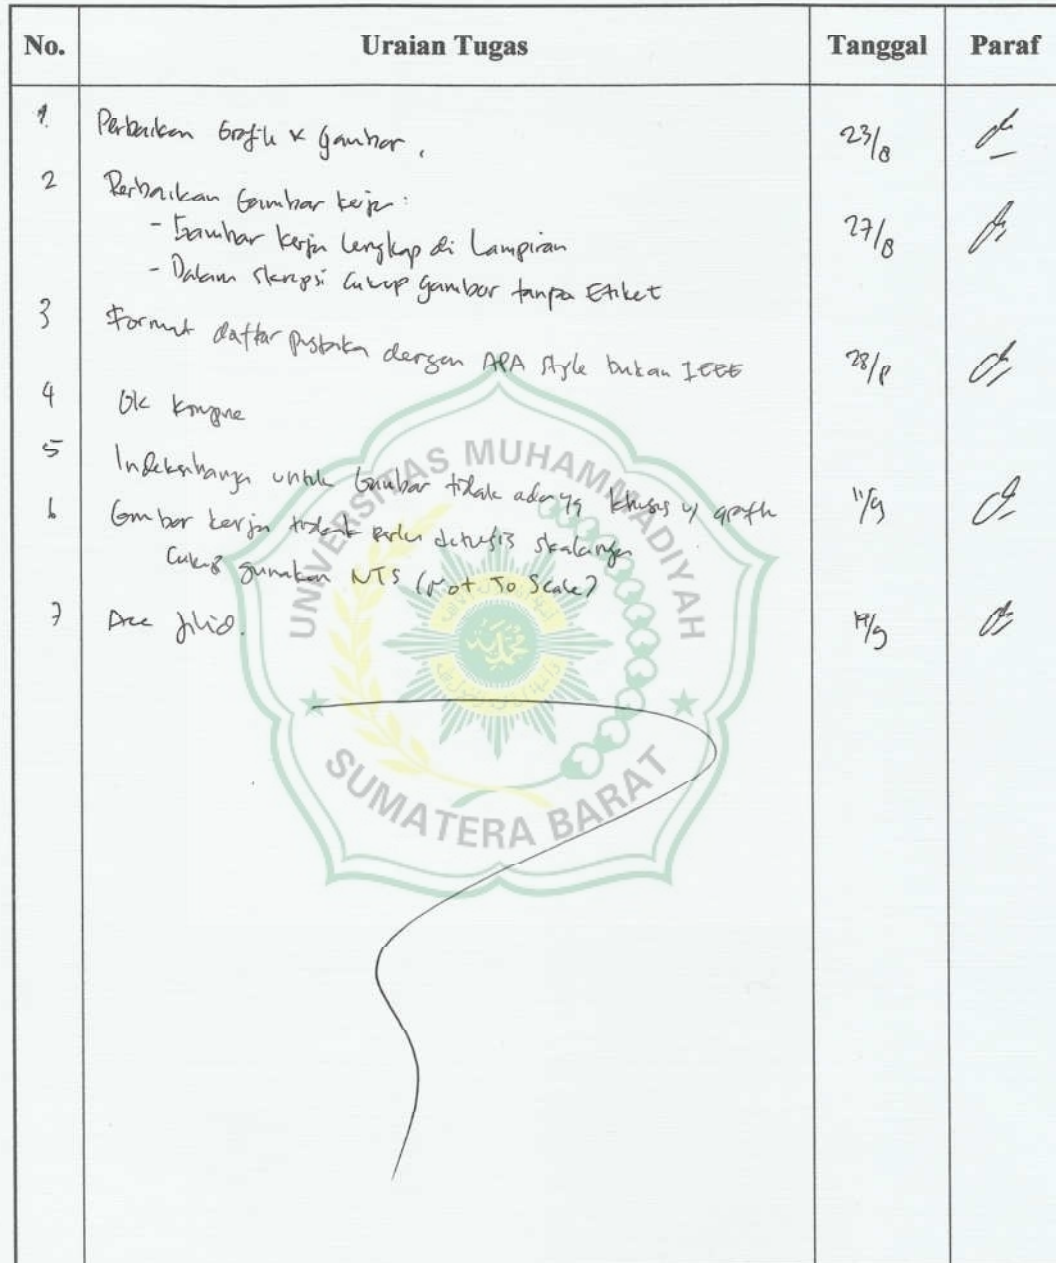 No. Uraian Tugas Tanggal Paraf
1. Perbaikan Grafik & Gambar. 23/8
2 Perbaikan Gambar kerja:
- Gambar kerja lengkap di Lampiran 27/8
- Dalam skripsi cukup gambar tanpa Etiket
3 Format daftar pustaka dengan APA Style bukan IEEE 28/8
4 Ok
5 untuk Gambar tidak ada yg khusus u/ grafik 11/9
6 Gambar kerja tidak perlu ditulis skalanya
Cukup gunakan NTS (Not To Scale)
7 Acc jilid. /9
UNIVERSITAS MUHAMMADIYAH
SUMATERA BARAT